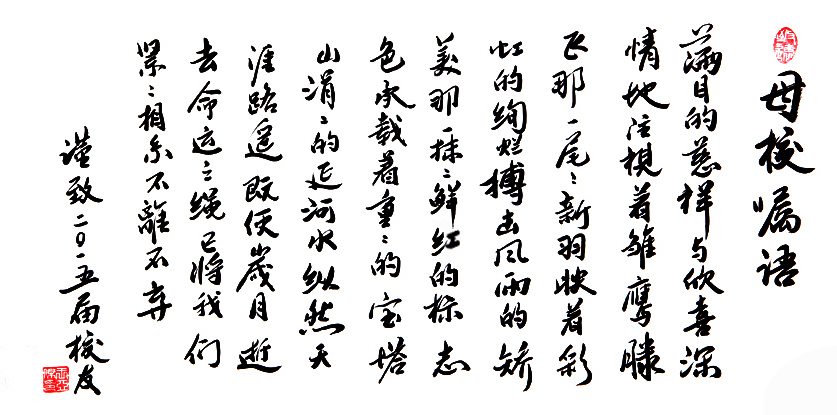 母校嘱语
满目的慈祥与欣喜深
情地注视着雏鹰腾
飞那一尾尾新羽映着彩
虹的绚烂搏击风雨的矫
美那一抹抹鲜红的标志
色承载着重重的宝塔
山涓涓的延河水纵然天
涯路遥既便岁月逝
去命运之绳已将我们
紧紧相系不離不弃
谨致二〇一五届校友